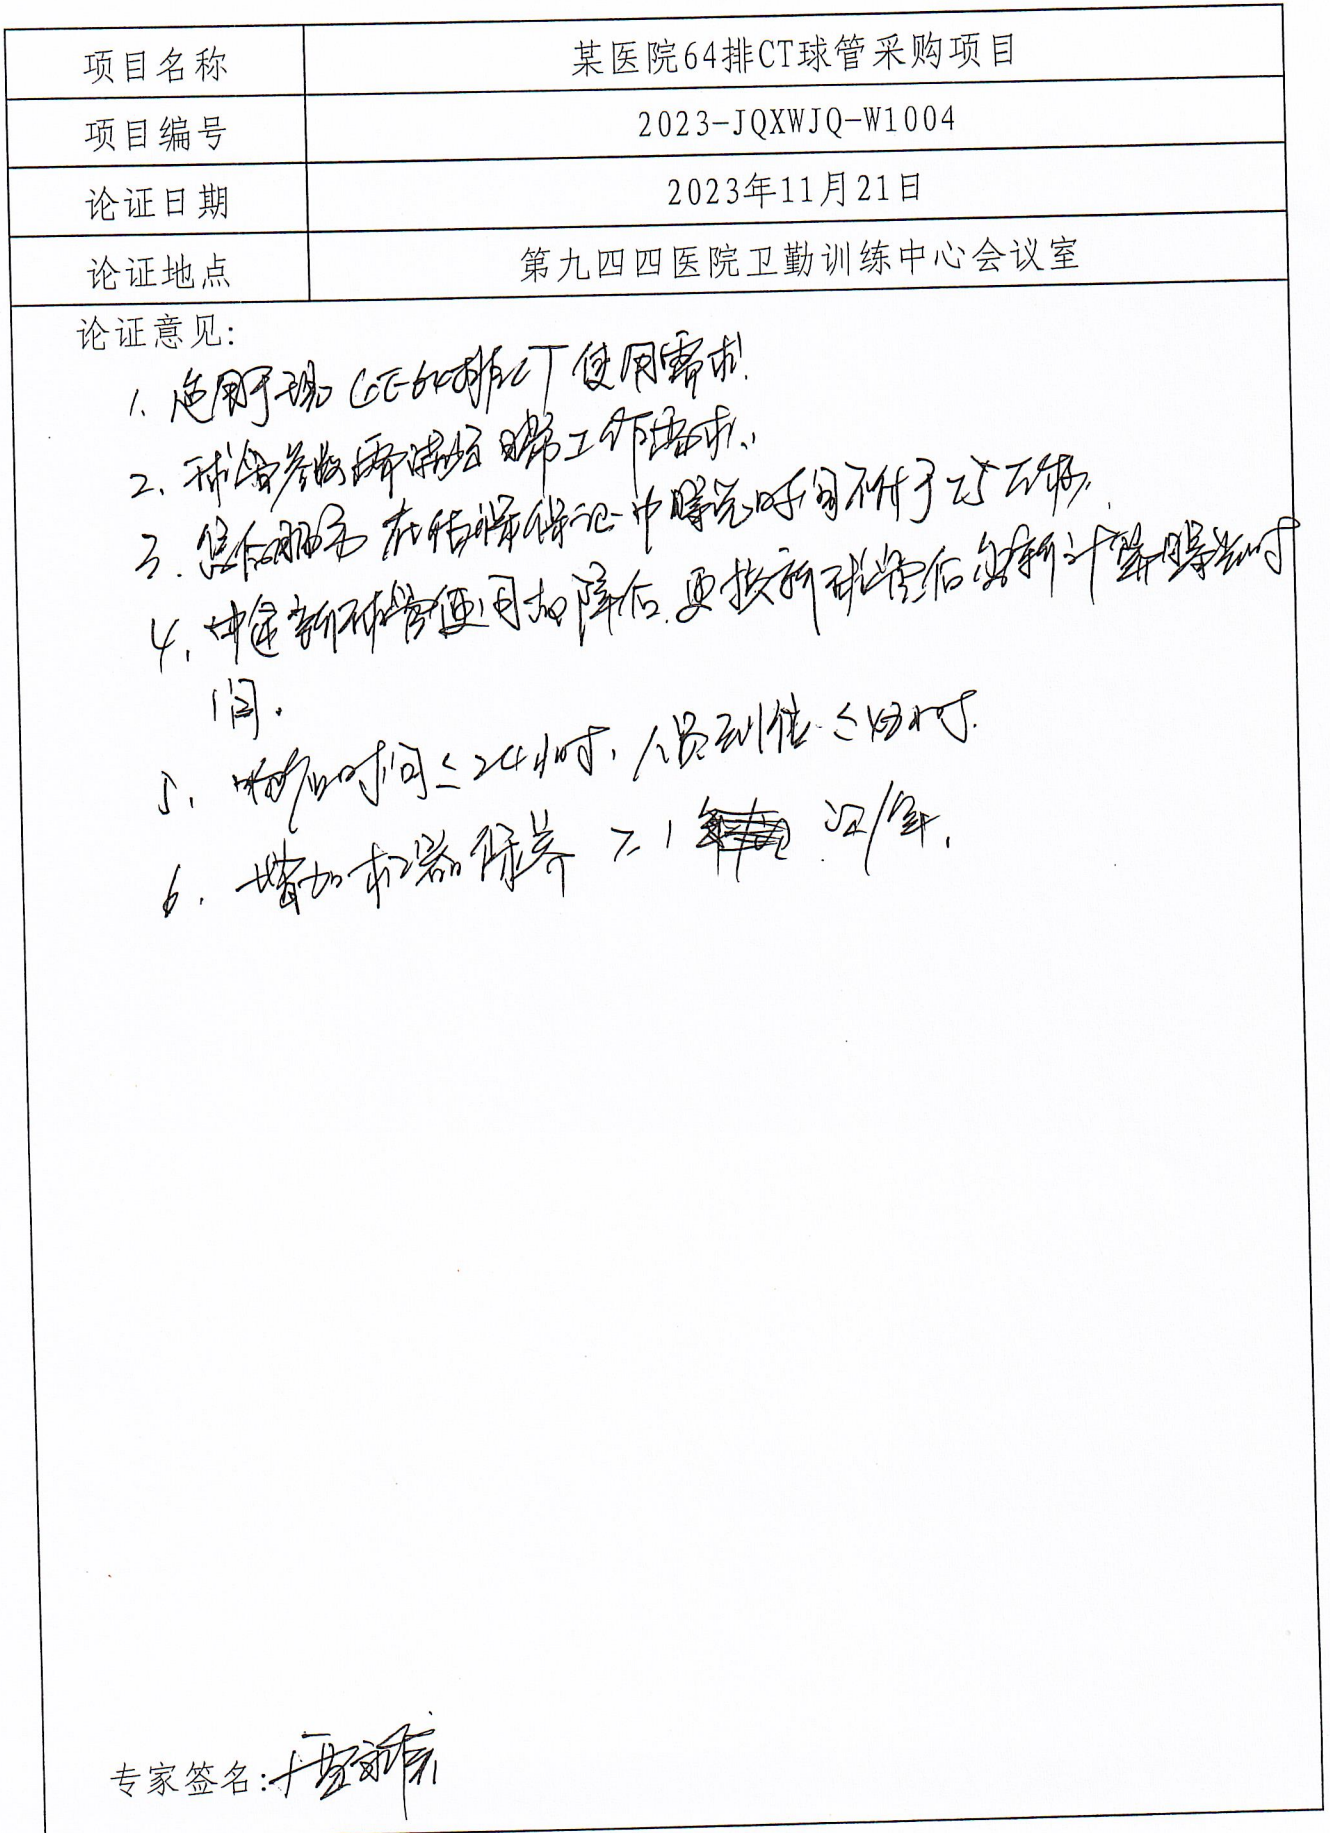 项目名称 某医院64排CT球管采购项目
项目编号 2023-JQXWJQ-W1004
论证日期 2023年11月21日
论证地点 第九四四医院卫勤训练中心会议室
论证意见:
1、适用于现GE64排CT使用需求.
2、球管参数需满足日常工作需求.
3.售后服务在质保保证中曝光时间不低于25万秒.
4、中途新球管使用故障后.更换新球管后重新计算曝光时
间.
5、响应时间≤24小时,人员到位≤48小时.
6.增加机器保养≥1次/年.
专家签名: